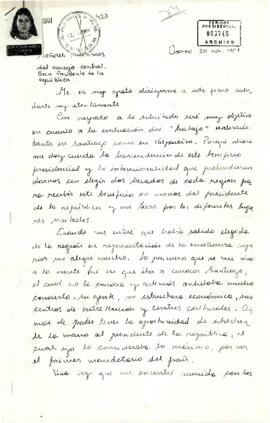 PERIODO
PRESIDENCIAL
003745
ARCHIVO
Osorno 20 nov. 1991
Señores
del consejo central.
Beca Presidente de la
república
Me es muy grato dirigirme a uds para saludarle muy atentamente
Con respecto a lo solicitado seré muy objetiva
en cuanto a la evaluación del "trabajo" realizado
tanto en Santiago como en Valparaíso. Porque ahora
me doy cuenta la trascendencia de este beneficio
presidencial y la intencionalidad que pretendieron
darnos, con elegir dos becados de cada región para recibir este beneficio en manos del presidente
de la república y nos lleves por los diferentes lugares visitados.
Cuando me enteré que había salido elegida
de la región en representación de la enseñanza superior me alegré mucho. Lo primero que se me vino
a la mente fue en que iba a conocer Santiago,
el cual no lo conocía y además anhelaba mucho
conocerlo, su gente, su estructura económica, sus
centros de entretención y centros culturales. Además de poder tener la oportunidad de estrechar
de la mano al presidente de la república, el
cual yo lo consideraba lo máximo, por ser
el primer mandatario del país.
Una vez que me encontré reunida con los